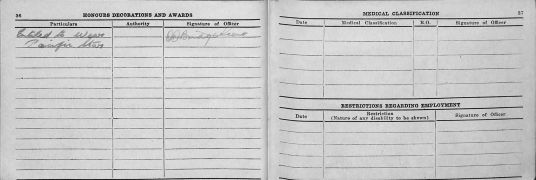 56
HONOURS DECORATIONS AND AWARDS
Particulars Authority Signature of Officer
Entitled to Wear
Pacific Star
57
MEDICAL CLASSIFICATION
Date Medical Classification R.O. Signature of Officer
RESTRICTIONS REGARDING EMPLOYMENT
Date Restriction Signature of Officer
(Nature of any disability to be shown)